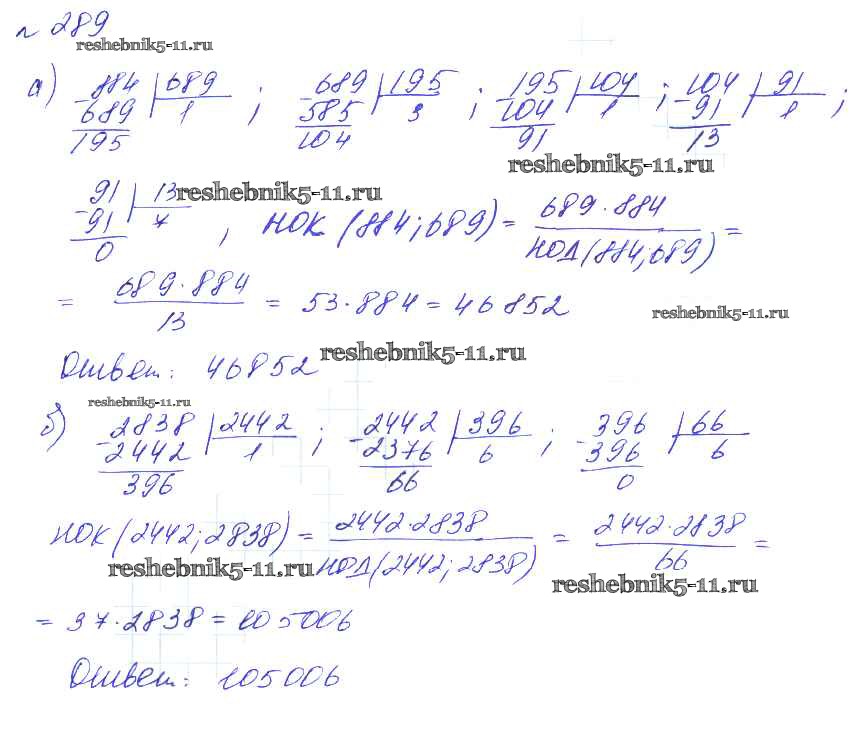 № 289
reshebnik5-11.ru
а) 884 | 689 ; 689 | 195 ; 195 | 104 ; 104 | 91 ;
- 689 | 1 - 585 | 3 - 104 | 1 - 91 | 1
195 104 91 13
reshebnik5-11.ru
91 | 13 reshebnik5-11.ru
- 91 | 7 , НОК (884; 689) = 689·884 / НОД(884; 689) =
0
= 689·884 / 13 = 53·884 = 46852
reshebnik5-11.ru
Ответ: 46852 reshebnik5-11.ru
reshebnik5-11.ru
б) 2838 | 2442 ; 2442 | 396 ; 396 | 66
- 2442 | 1 - 2376 | 6 - 396 | 6
396 66 0
НОК (2442; 2838) = 2442·2838 / НОД(2442; 2838) = 2442·2838 / 66 =
reshebnik5-11.ru reshebnik5-11.ru
= 37·2838 = 105006
Ответ: 105006